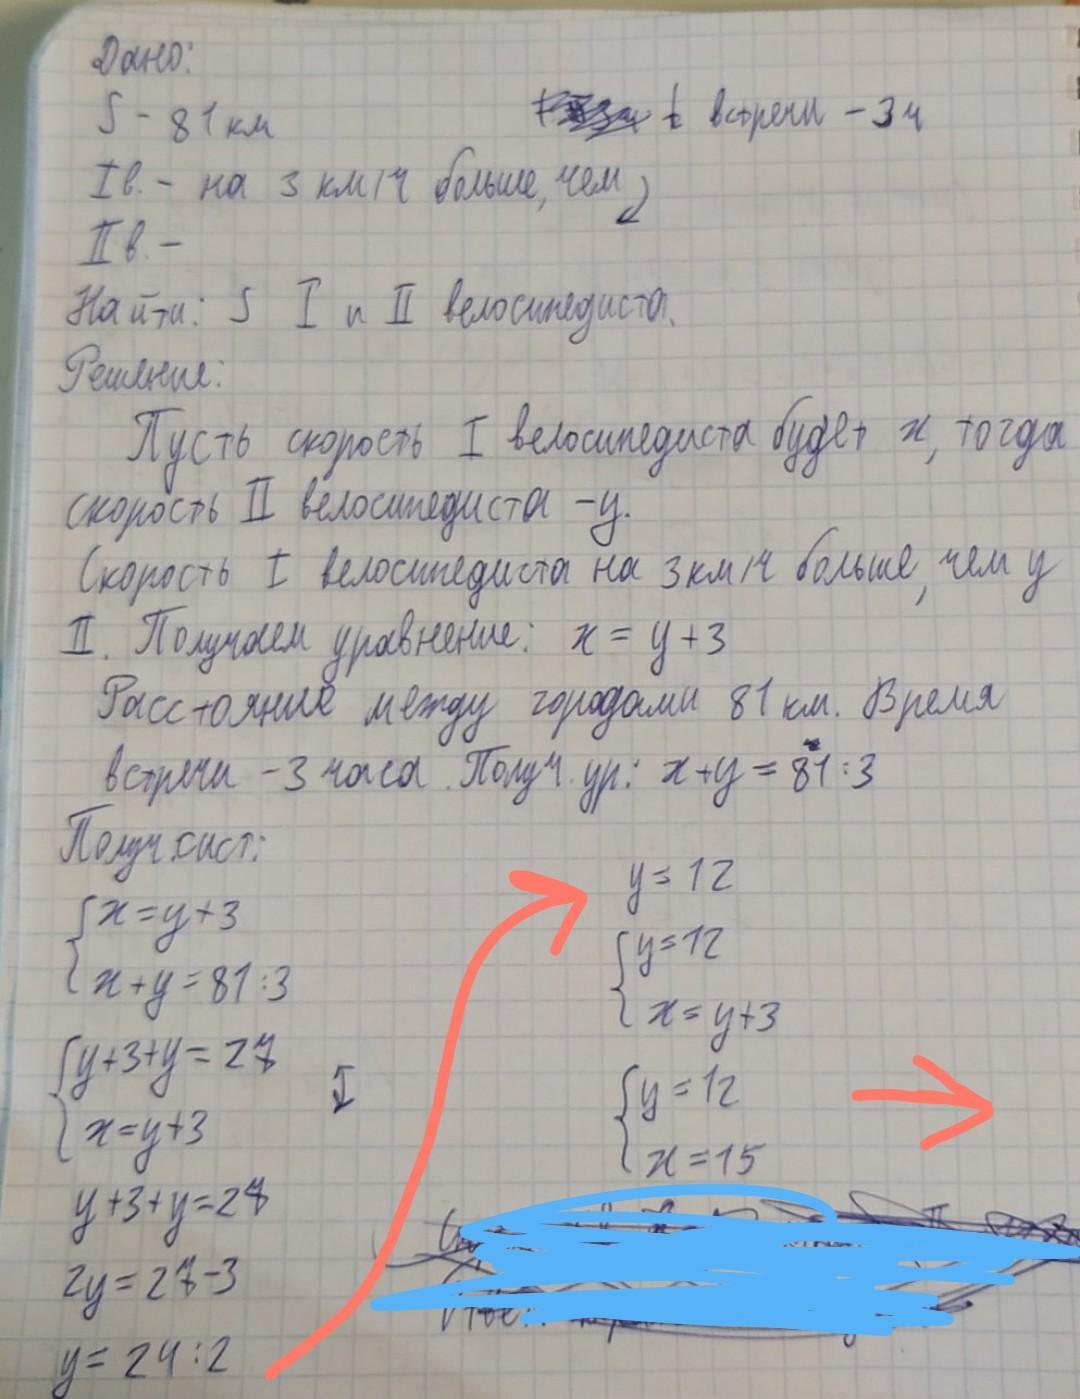 Дано:
S - 81 км
t встречи - 3 ч
I в. - на 3 км/ч больше, чем
II в. -
Найти: S I и II велосипедиста.
Решение:
Пусть скорость I велосипедиста будет x, тогда
скорость II велосипедиста - y.
Скорость I велосипедиста на 3 км/ч больше, чем у
II. Получаем уравнение: x = y + 3
Расстояние между городами 81 км. Время
встречи - 3 часа. Получ. ур: x + y = 81 : 3
Получ. сист:
{ x = y + 3
x + y = 81 : 3
{ y + 3 + y = 27
x = y + 3
y + 3 + y = 27
2y = 27 - 3
y = 24 : 2
y = 12
{ y = 12
x = y + 3
{ y = 12
x = 15